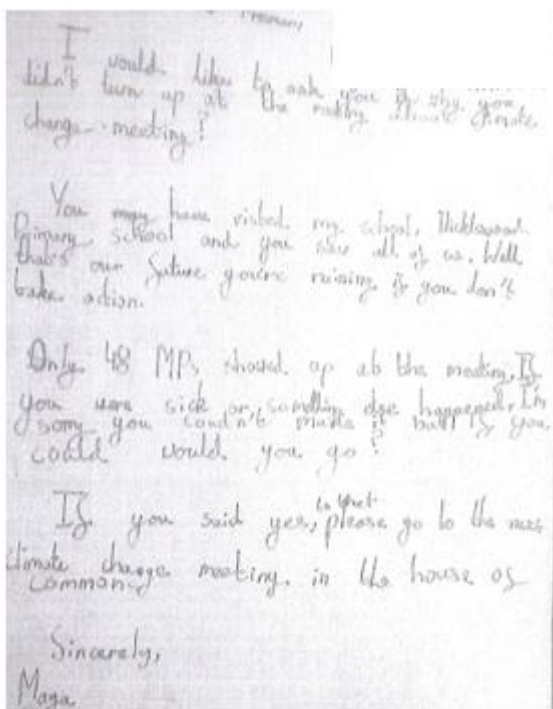 I would like to ask you is why you
didn't turn up at the meeting about climate
change meeting?
You may have visited my school,
Primary School and you saw all of us. Well
that's our future you're ruining if you don't
take action.
Only 48 MPs showed up at the meeting. If
you were sick or something else happened, I'm
sorry you coudn't make it but if you
could would you go?
If you said yes, to that please go to the next
climate change meeting in the house of
commons
Sincerely,
Maya